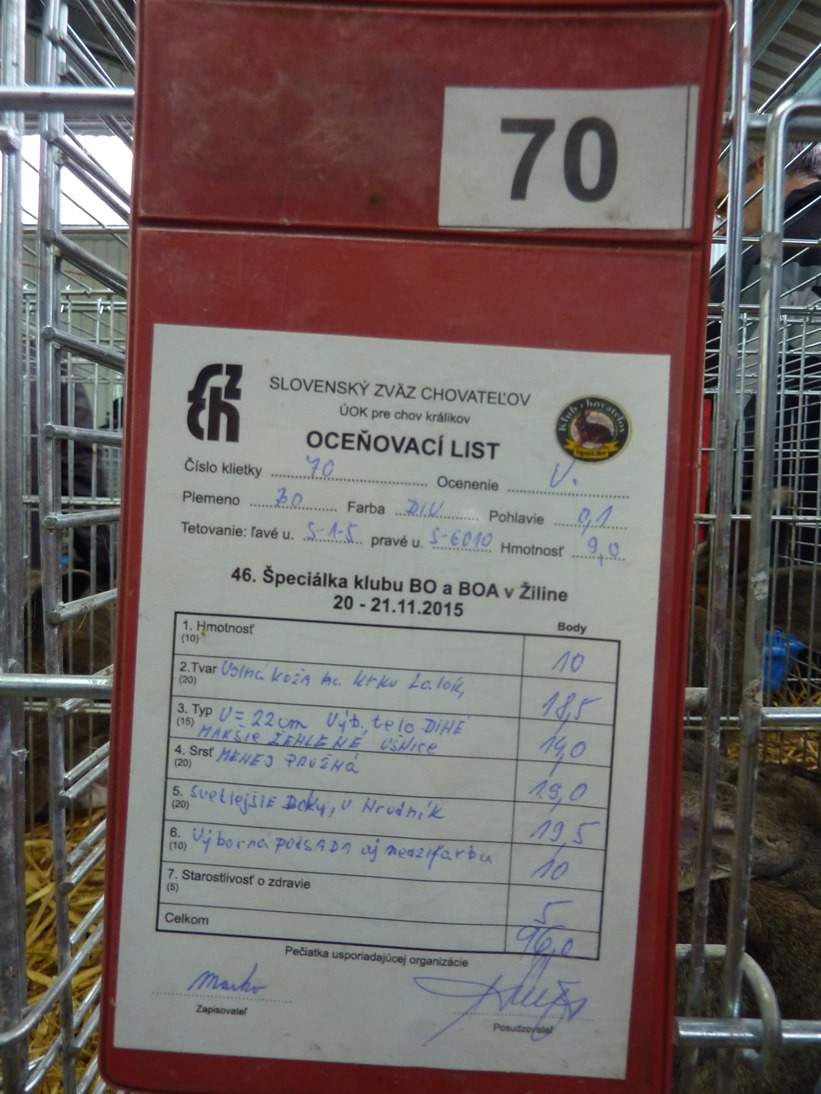 70
SLOVENSKÝ ZVÄZ CHOVATEĽOV
ÚOK pre chov králikov
OCEŇOVACÍ LIST
Klub chovateľov
Číslo klietky 70 Ocenenie V.
Plemeno BO Farba DIV Pohlavie 0,1
Tetovanie: ľavé u. S-1-5 pravé u. S-6010 Hmotnosť 9,0
46. Špeciálka klubu BO a BOA v Žiline
20 - 21.11.2015
Body
1. Hmotnosť
(10) 10
2.Tvar Voľná koža na krku Lalok,
(20) 18,5
3. Typ U= 22cm Výb. telo DlHÉ
(15) MAKŠIE ŽEHLENÉ UŠNICE 14,0
4. Srsť MENEJ PRUŽNÁ
(20) 19,0
5. Svetlejšie Boky, v Hrudník
(20) 19,5
6. Výborná podSADA aj medzifarba
(10) 10
7. Starostlivosť o zdravie
(5) 5
Celkom 96,0
Pečiatka usporiadajúcej organizácie
Marko
Zapisovateľ
Posudzovateľ